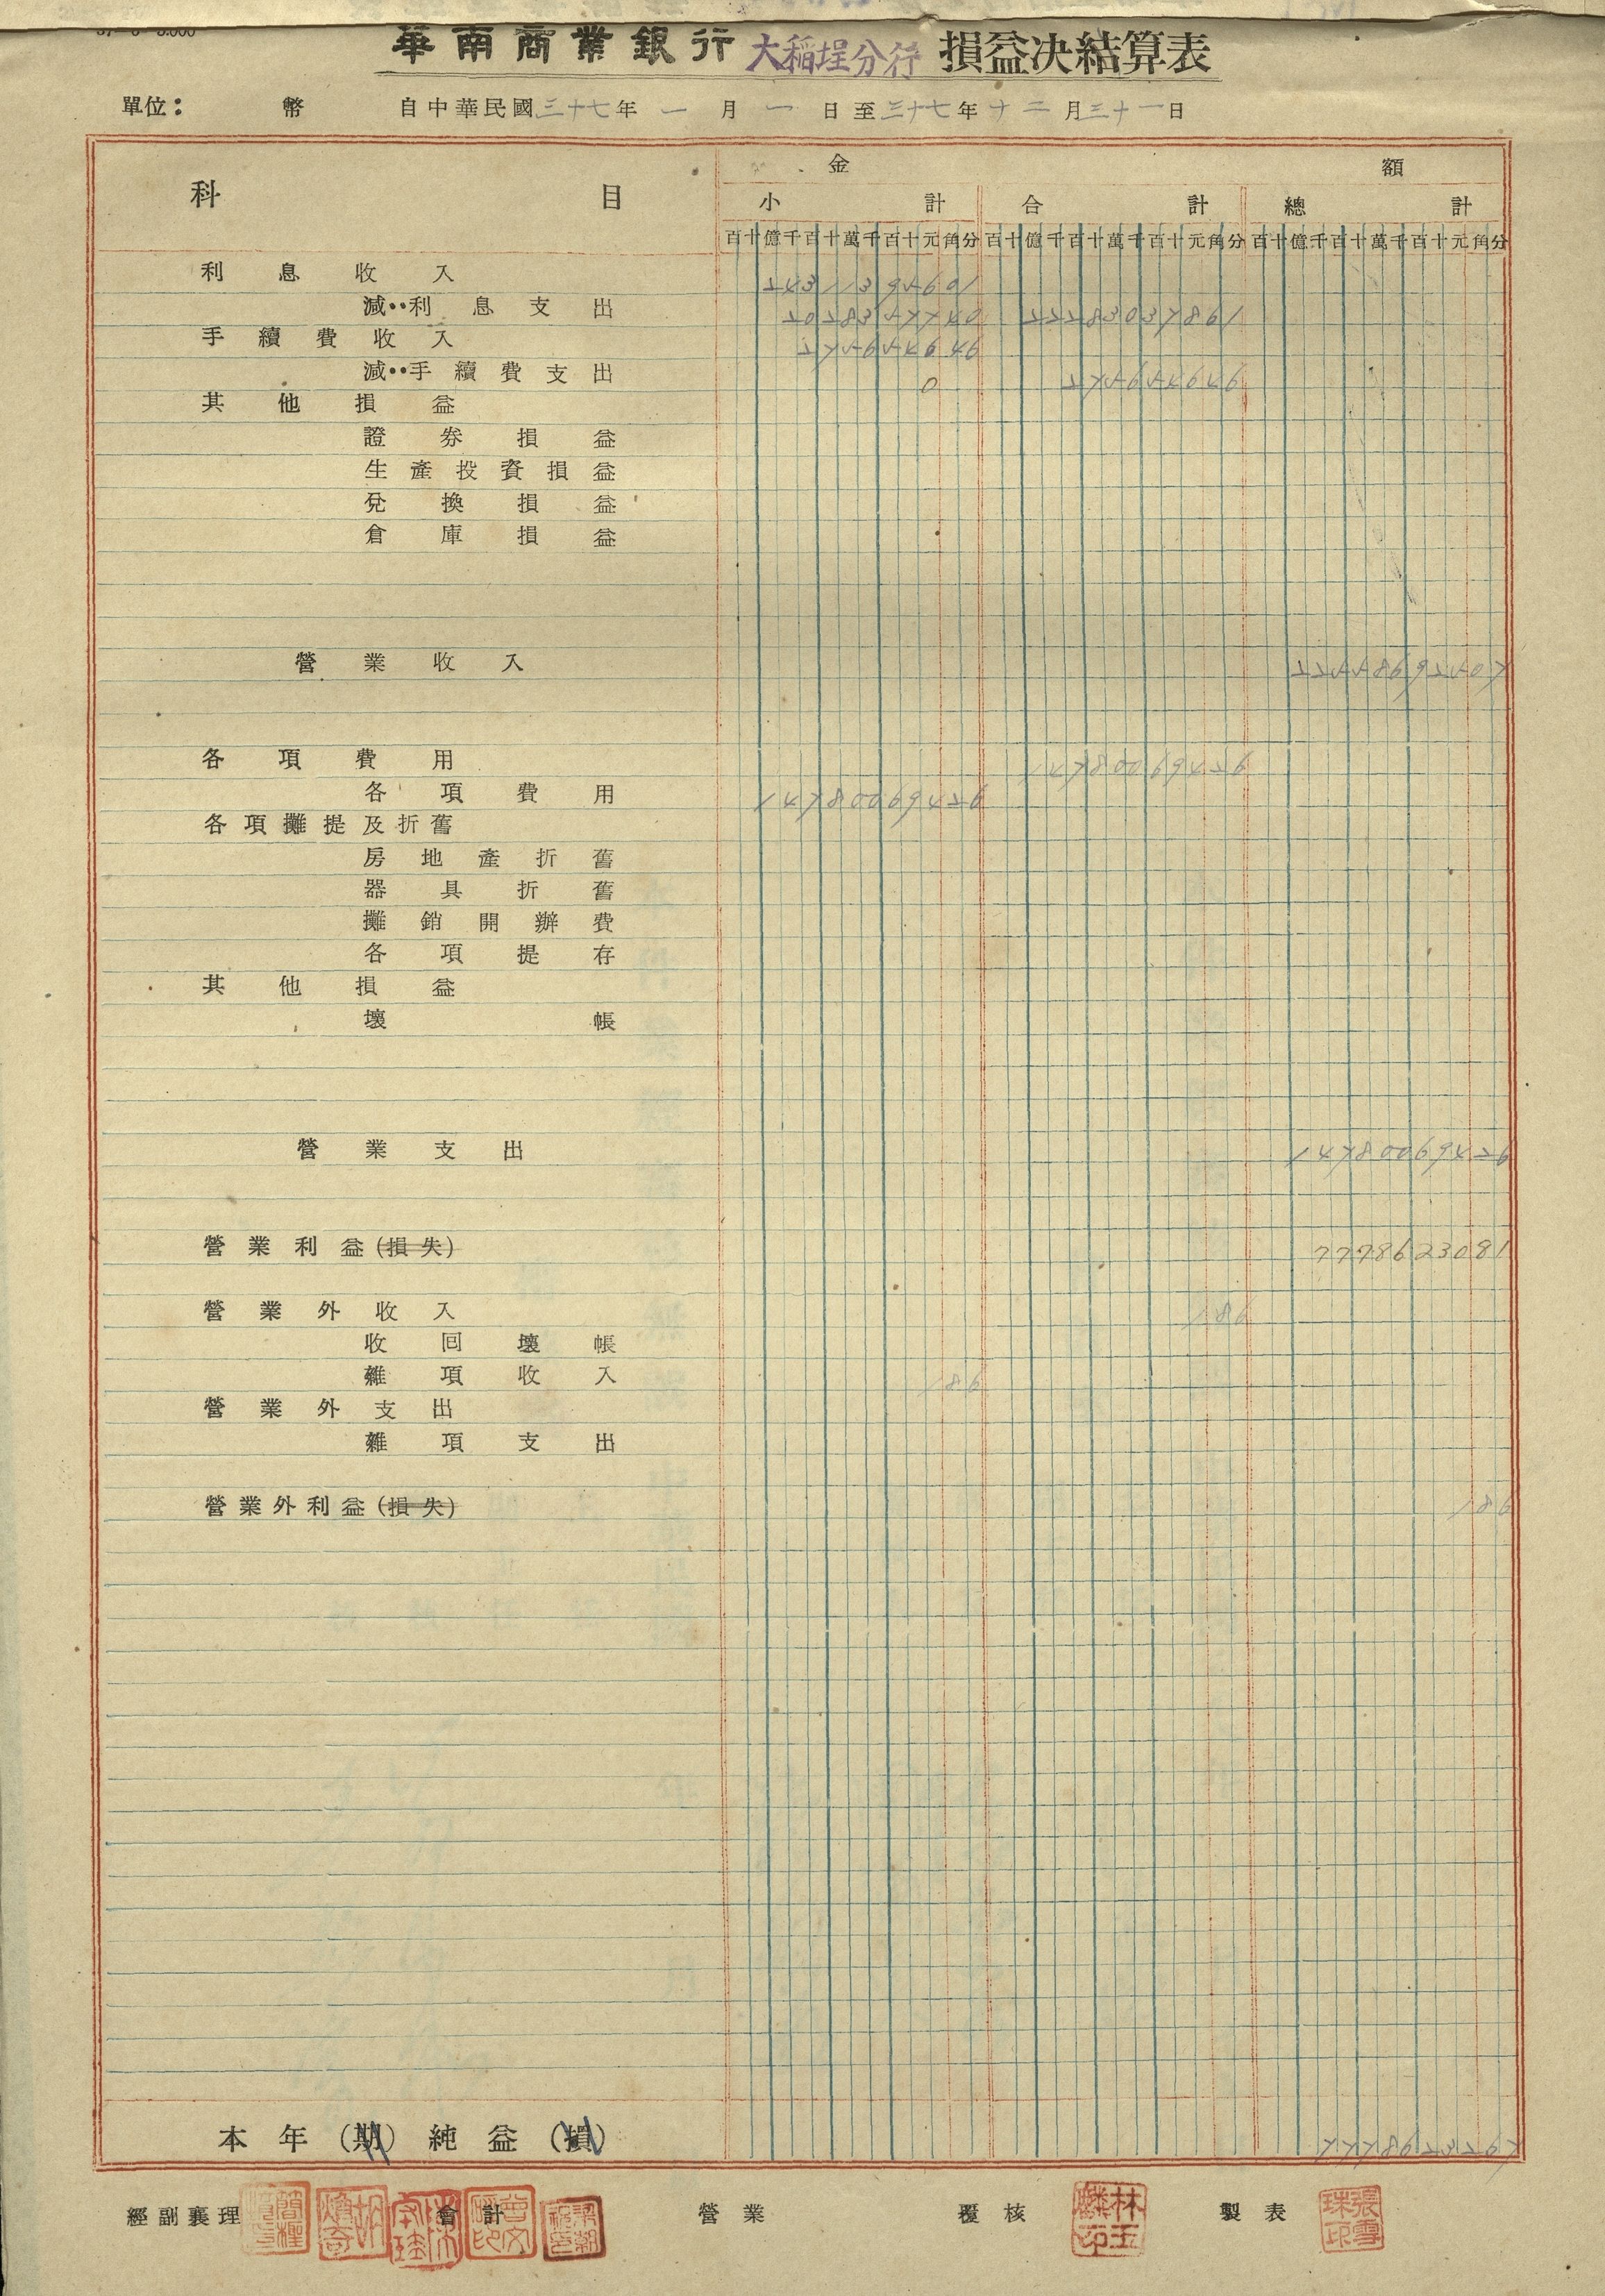 華南商業銀行 大稻埕分行 損益決結算表
單位： 幣 自中華民國三十七年一月一日至三十七年十二月三十一日
科目 金額
小計 合計 總計
百十億千百十萬千百十元角分 百十億千百十萬千百十元角分 百十億千百十萬千百十元角分
利息收入 24311395601
減：利息支出 2028357740 22283037861
手續費收入 275654646
減：手續費支出 0 275654646
其他損益
證券損益
生產投資損益
兌換損益
倉庫損益
營業收入 22558692507
各項費用 14780069426
各項費用 14780069426
各項攤提及折舊
房地產折舊
器具折舊
攤銷開辦費
各項提存
其他損益
壞帳
營業支出 14780069426
營業利益(損失) 7778623081
營業外收入 186
收回壞帳
雜項收入 186
營業外支出
雜項支出
營業外利益(損失) 186
本年(期)純益(損) 7778623267
經副襄理 會計 營業 覆核 林玉麟印 製表 張雪珠印